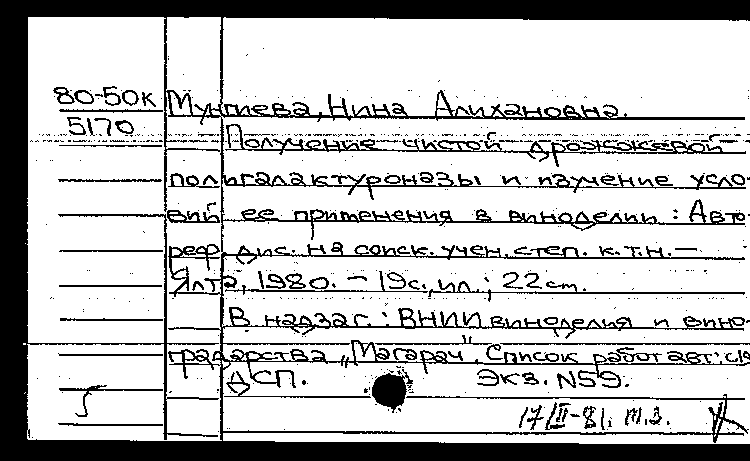 80-50к Мунгиева, Нина Алихановна.
5170
Получение чистой дрожжевой
полигалактуроназы и изучение усло-
вий ее применения в виноделии : Авто-
реф. дис. на соиск. учен. степ. к.т.н. —
Ялта, 1980. — 19с., ил.; 22см.
В надзаг.: ВНИИ виноделия и вино-
градарства „Магарач". Список работ авт.: с.19
ДСП. Экз. N59.
17/II-81г. т.з.